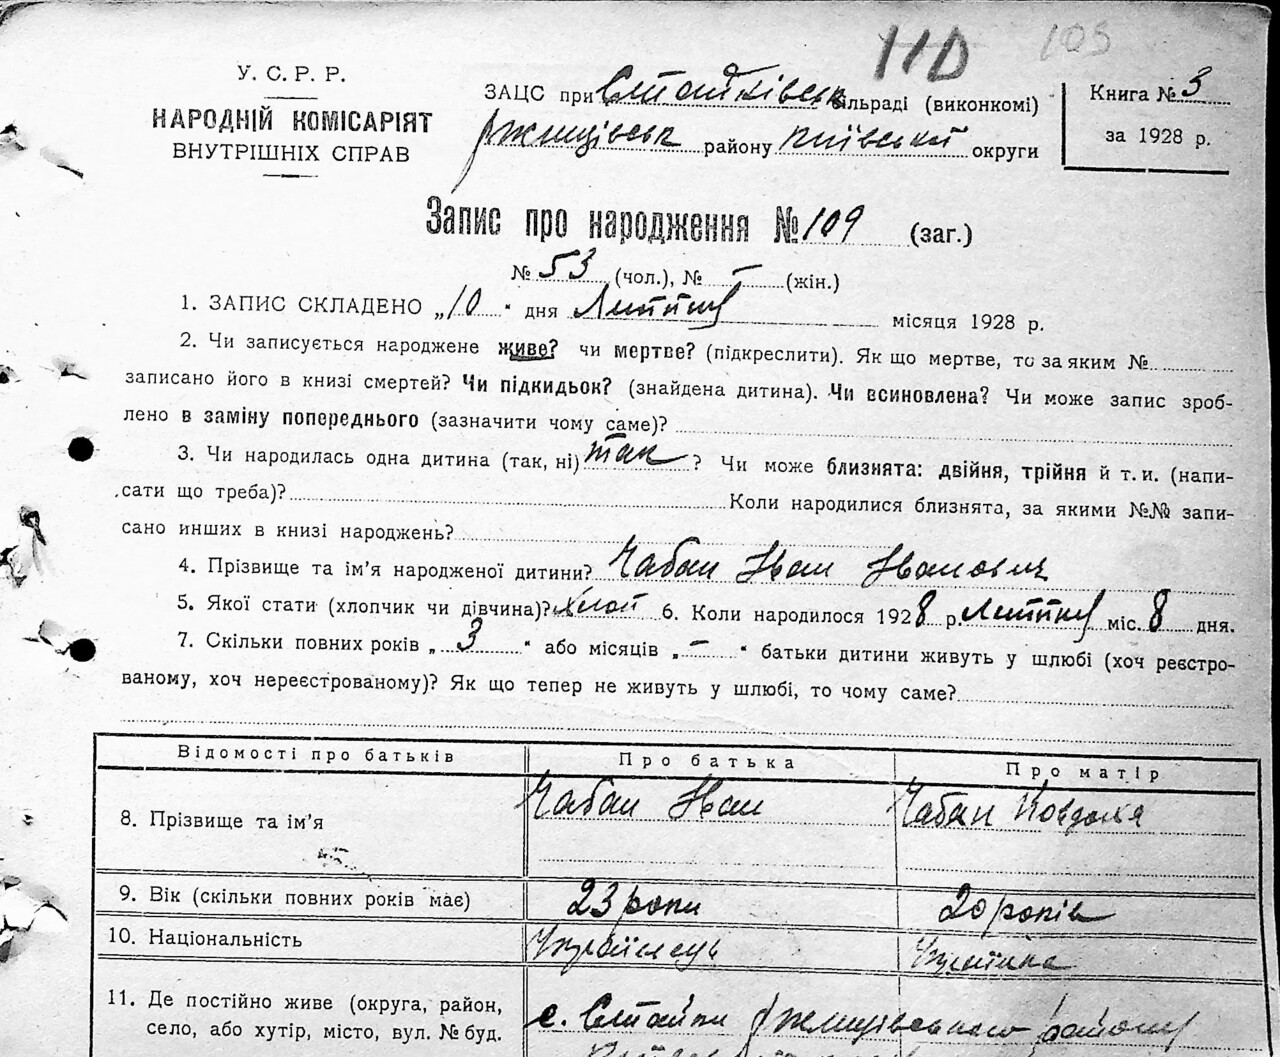 110 105
У. С. Р. Р.
НАРОДНІЙ КОМІСАРІЯТ
ВНУТРІШНІХ СПРАВ
ЗАЦС при Стайківськ сільраді (виконкомі)
Ржищівськ району Київської округи
Книга № 3
за 1928 р.
Запис про народження № 109 (заг.)
№ 53 (чол.), № – (жін.)
1. ЗАПИС СКЛАДЕНО „10“ дня Липня місяця 1928 р.
2. Чи записується народжене живе? чи мертве? (підкреслити). Як що мертве, то за яким №
записано його в книзі смертей? Чи підкидьок? (знайдена дитина). Чи всиновлена? Чи може запис зроб-
лено в заміну попереднього (зазначити чому саме)?
3. Чи народилась одна дитина (так, ні) так ? Чи може близнята: двійня, трійня й т. и. (напи-
сати що треба)? Коли народилися близнята, за якими №№ запи-
сано инших в книзі народжень?
4. Прізвище та ім’я народженої дитини? Чабан Іван Іванович
5. Якої стати (хлопчик чи дівчина)? Хлоп 6. Коли народилося 1928 р. Липня міс. 8 дня.
7. Скільки повних років „3“ або місяців „–“ батьки дитини живуть у шлюбі (хоч реєстро-
ваному, хоч нереєстрованому)? Як що тепер не живуть у шлюбі, то чому саме?
Відомості про батьків Про батька Про матір
8. Прізвище та ім’я Чабан Іван Чабан Явдоха
9. Вік (скільки повних років має) 23 роки 20 років
10. Національність Українець Українка
11. Де постійно живе (округа, район,
село, або хутір, місто, вул. № буд.
с. Стайки Ржищівського району